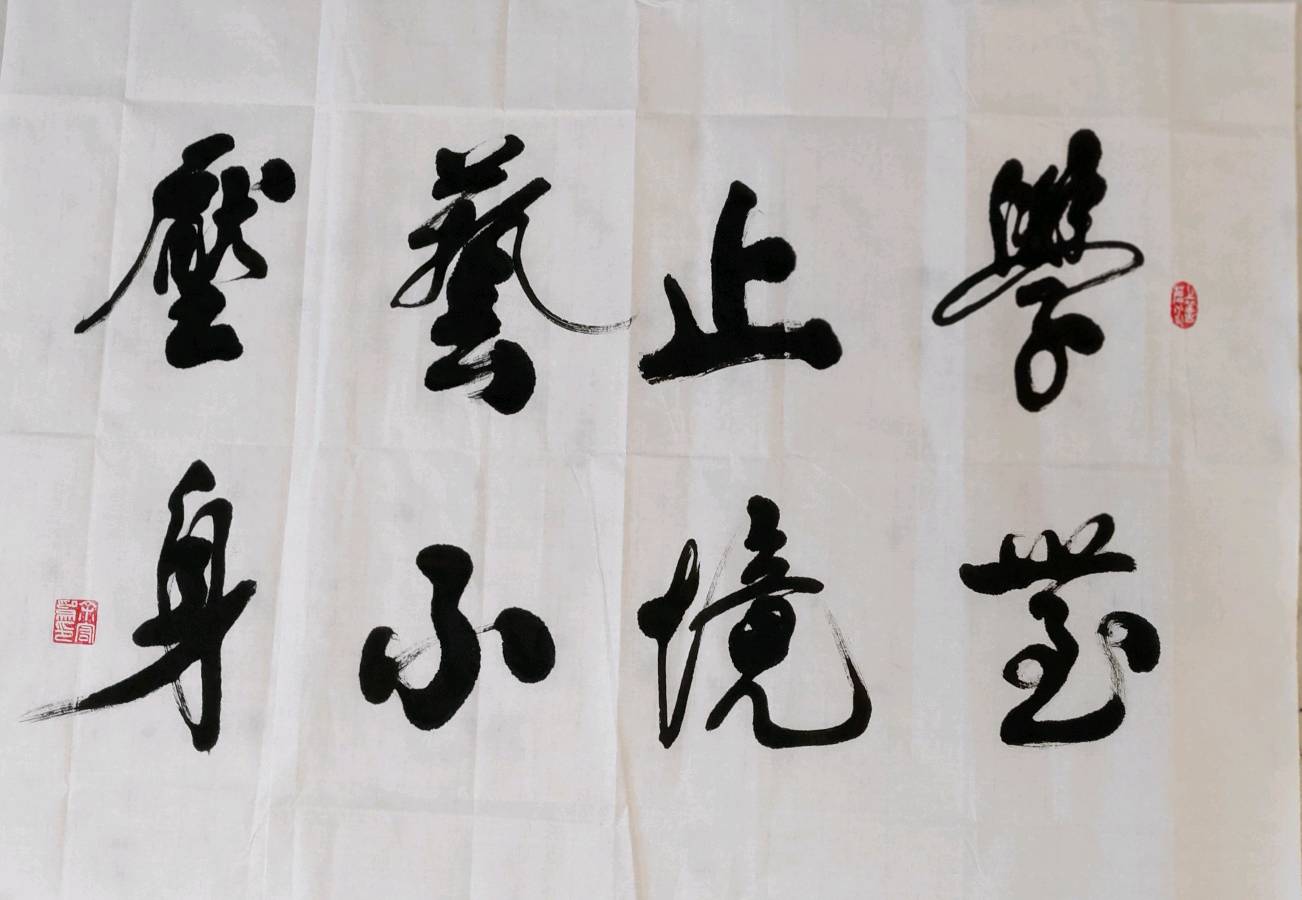 學無
止境
藝不
壓身